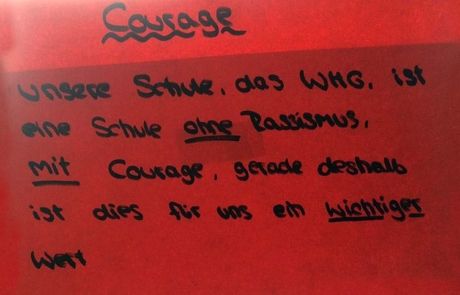 Courage
Unsere Schule, das WHG, ist
eine Schule ohne Rassismus,
mit Courage, gerade deshalb
ist dies für uns ein wichtiger
Wert